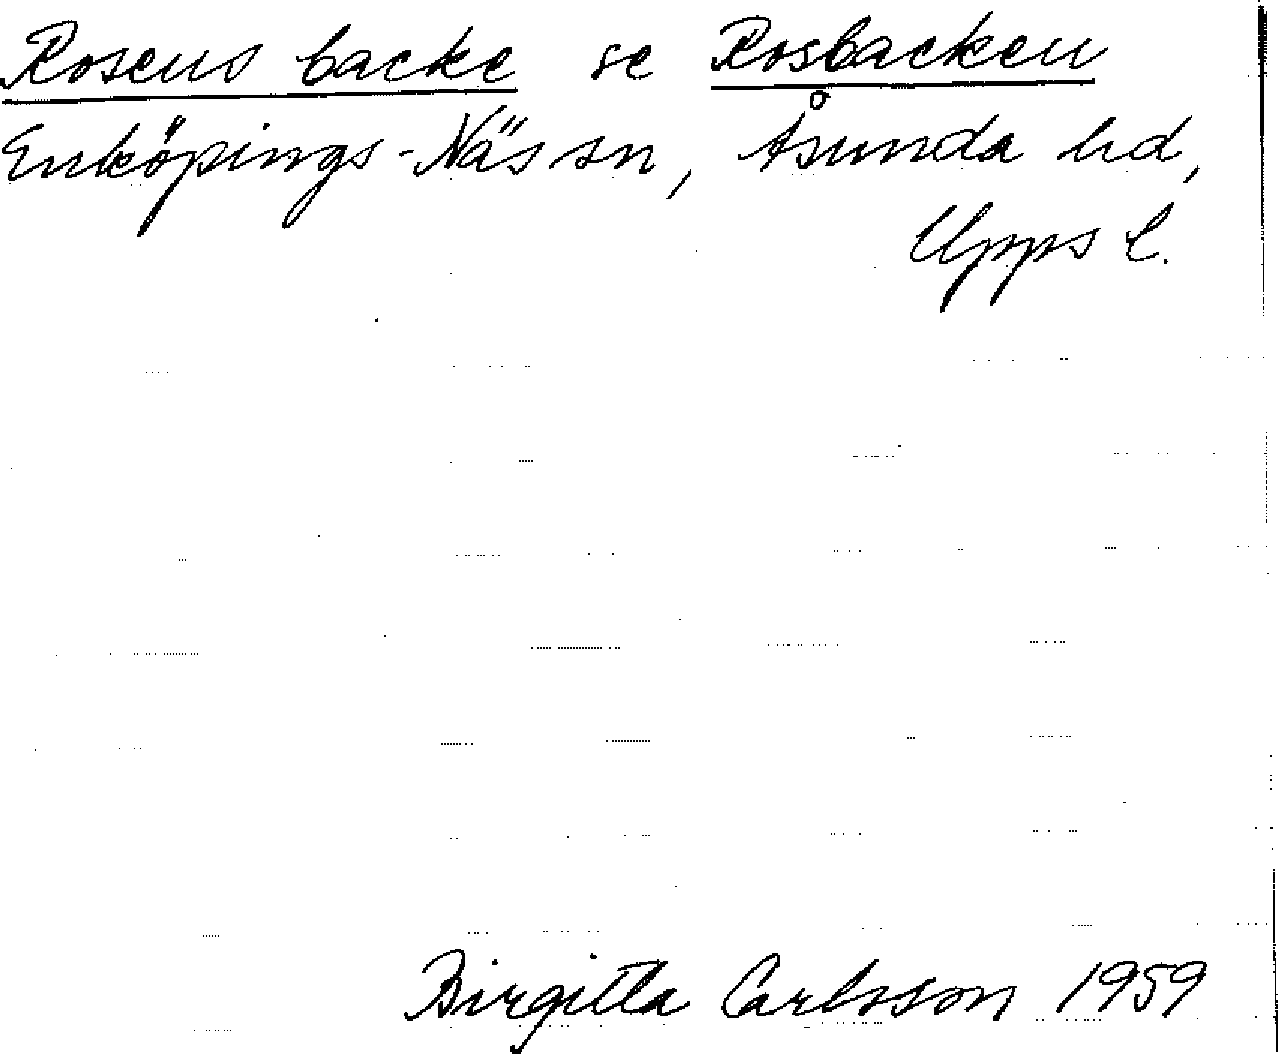 Rosens backe se Rosbacken
Enköpings-Näs sn, Åsunda hd,
Upps l.
Birgitta Carlsson 1959